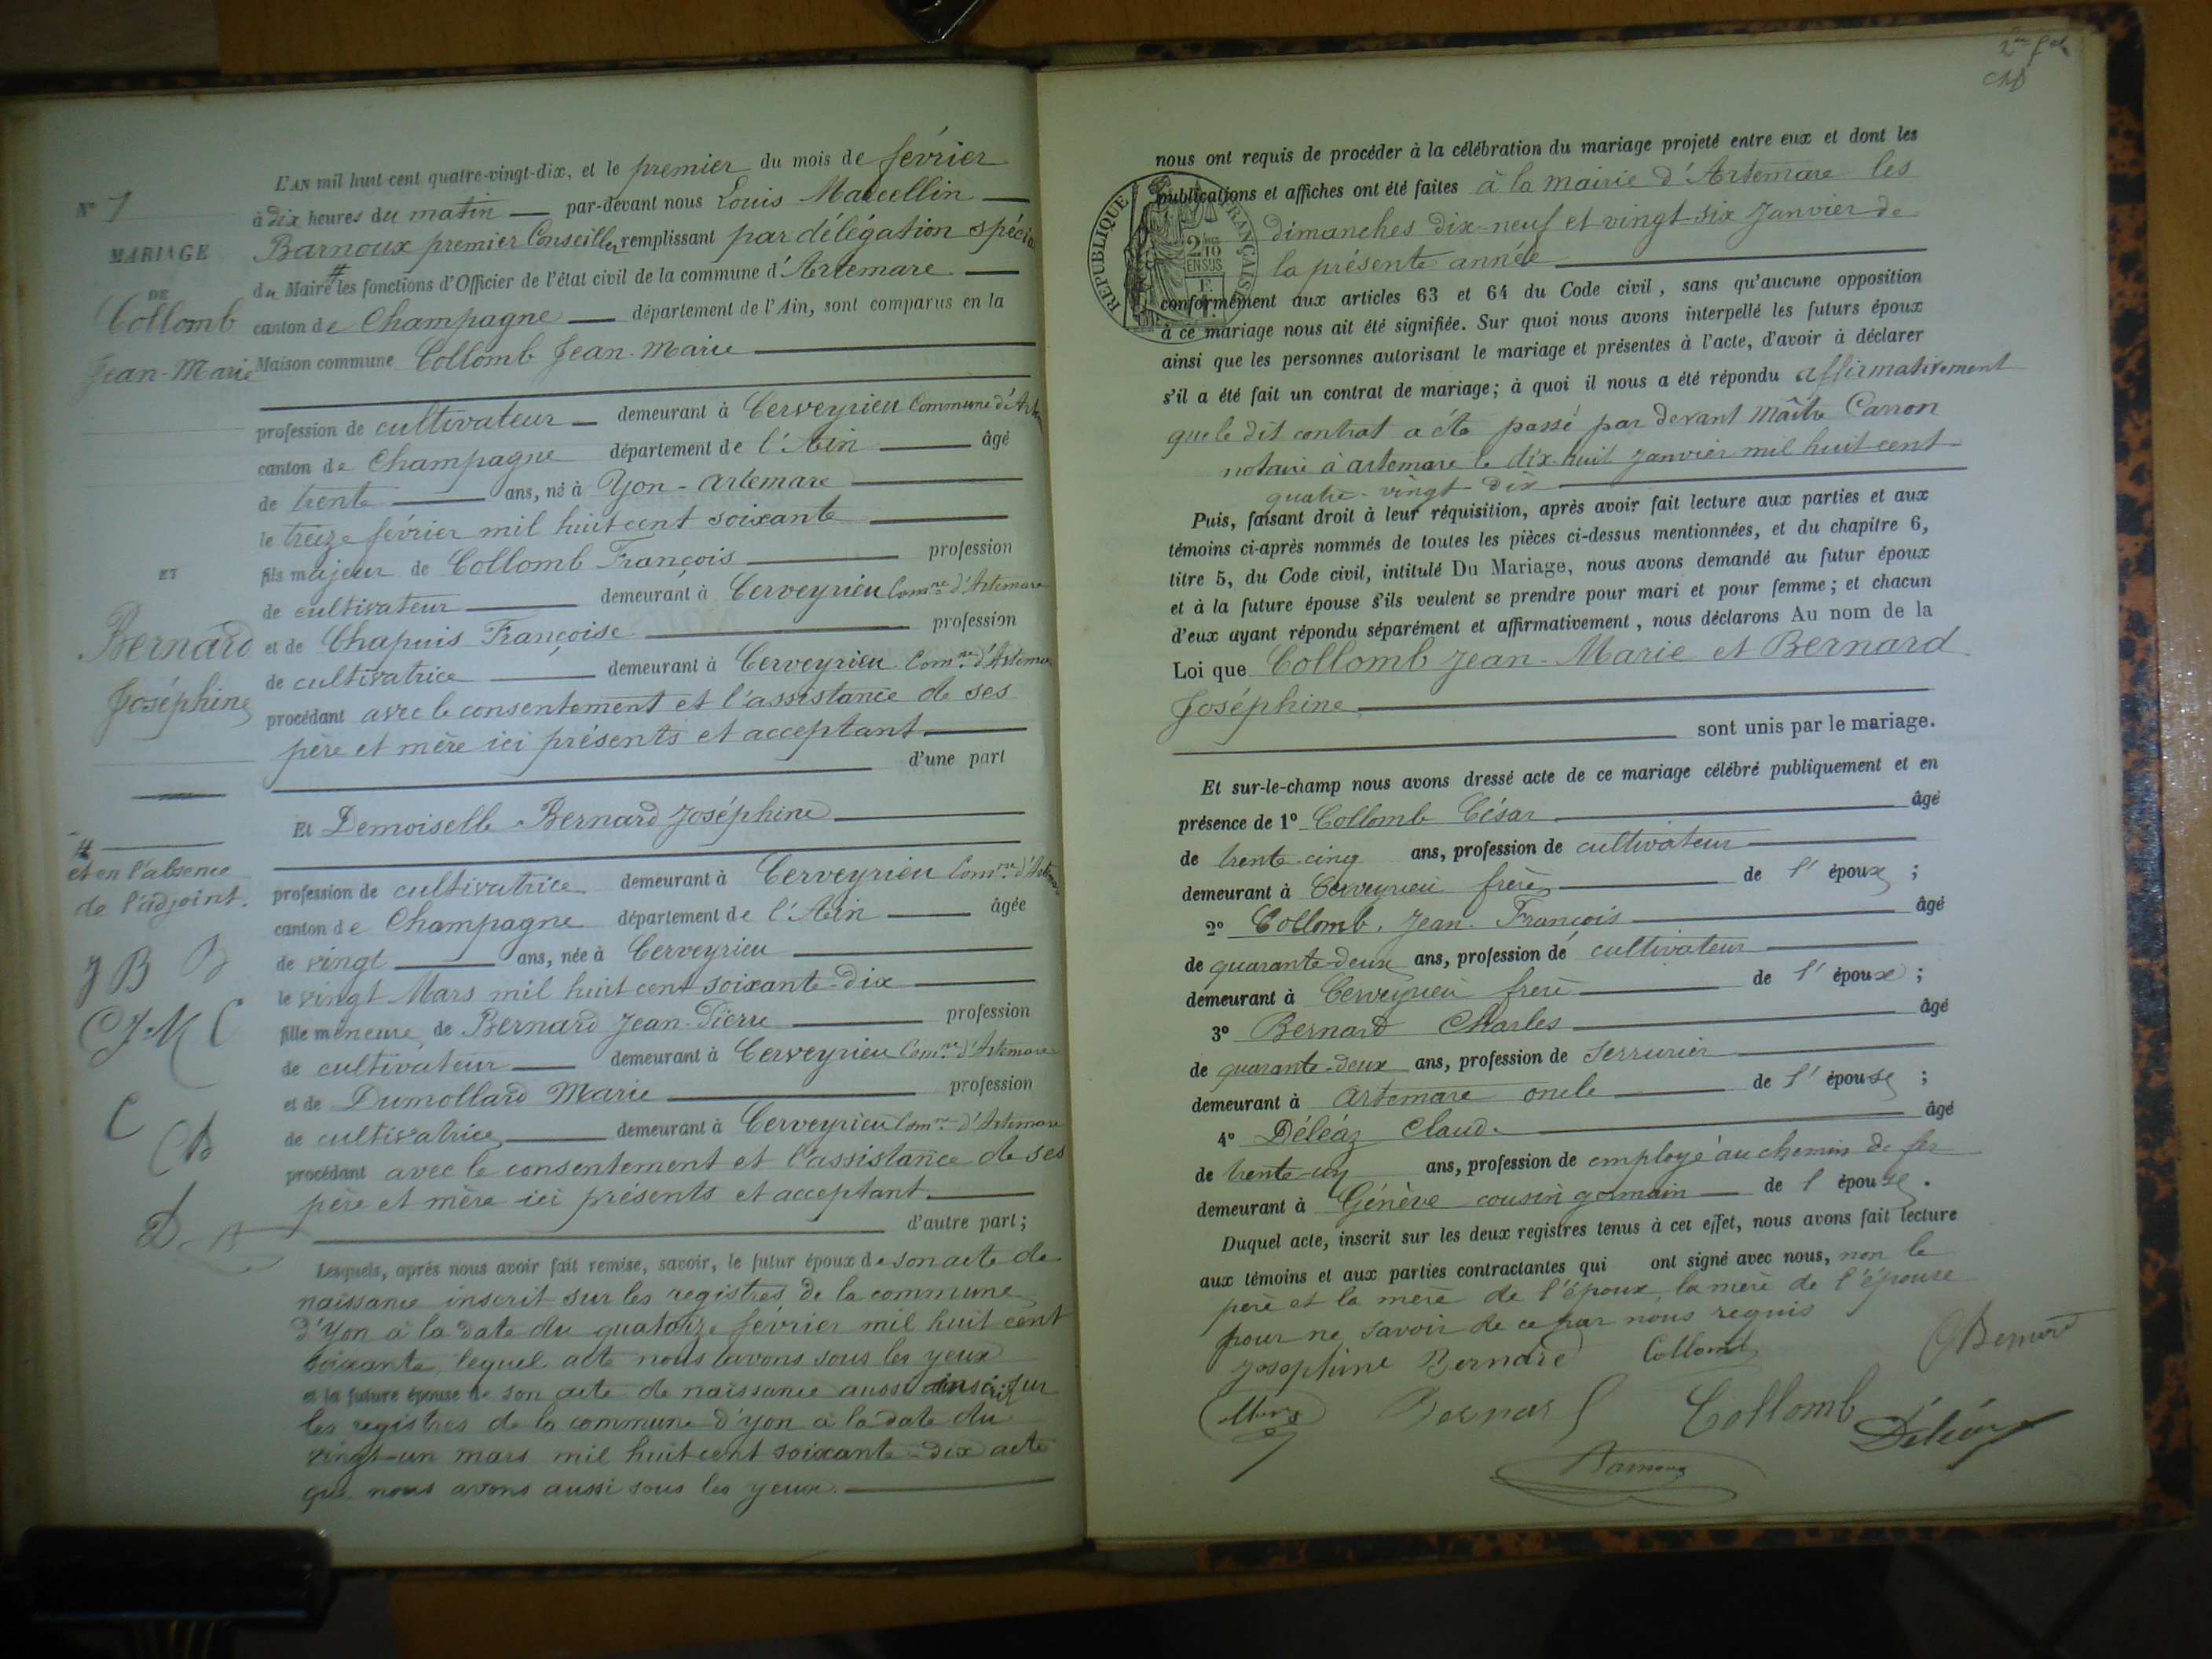 N° 1
MARIAGE
DE
Collomb
Jean-Marie
ET
Bernard
Joséphine
#
et en l'absence
de l'adjoint.
J B B
C J-M C
C
CB
D
L'AN mil huit cent quatre-vingt-dix, et le premier du mois de février
à dix heures du matin par-devant nous Louis Marcellin
Barnoux premier Conseiller remplissant par délégation spécia
du Maire # les fonctions d'Officier de l'état civil de la commune d'Artemare
canton de Champagne département de l'Ain, sont comparus en la
Maison commune Collomb Jean-Marie
profession de cultivateur demeurant à Cerveyrieu Commune d'Artem
canton de Champagne département de l'Ain âgé
de trente ans, né à Yon-Artemare
le treize février mil huit cent soixante
fils majeur de Collomb François profession
de cultivateur demeurant à Cerveyrieu Comne d'Artemare
et de Chapuis Françoise profession
de cultivatrice demeurant à Cerveyrieu Comne d'Artemare
procédant avec le consentement et l'assistance de ses
père et mère ici présents et acceptant
d'une part
Et Demoiselle Bernard Joséphine
profession de cultivatrice demeurant à Cerveyrieu Comne d'Artemare
canton de Champagne département de l'Ain âgée
de vingt ans, née à Cerveyrieu
le vingt Mars mil huit cent soixante-dix
fille mineure de Bernard Jean-Pierre profession
de cultivateur demeurant à Cerveyrieu Comne d'Artemare
et de Dumollard Marie profession
de cultivatrice demeurant à Cerveyrieu Comne d'Artemare
procédant avec le consentement et l'assistance de ses
père et mère ici présents et acceptant
d'autre part;
Lesquels, après nous avoir fait remise, savoir, le futur époux de son acte de
naissance inscrit sur les registres de la commune
d'Yon à la date du quatorze février mil huit cent
soixante, lequel acte nous avons sous les yeux
et la future épouse de son acte de naissance aussi inscrit sur
les registres de la commune d'yon à la date du
vingt-un mars mil huit cent soixante-dix acte
que nous avons aussi sous les yeux
nous ont requis de procéder à la célébration du mariage projeté entre eux et dont les
publications et affiches ont été faites à la mairie d'Artemare les
dimanches dix-neuf et vingt-six Janvier de
la présente année
RÉPUBLIQUE FRANÇAISE
2/10
EN SUS
conformément aux articles 63 et 64 du Code civil, sans qu'aucune opposition
à ce mariage nous ait été signifiée. Sur quoi nous avons interpellé les futurs époux
ainsi que les personnes autorisant le mariage et présentes à l'acte, d'avoir à déclarer
s'il a été fait un contrat de mariage; à quoi il nous a été répondu affirmativement
que le dit contrat a été passé par devant Maître Carron
notaire à artemare le dix-huit janvier mil huit-cent
quatre-vingt-dix
Puis, faisant droit à leur réquisition, après avoir fait lecture aux parties et aux
témoins ci-après nommés de toutes les pièces ci-dessus mentionnées, et du chapitre 6,
titre 5, du Code civil, intitulé Du Mariage, nous avons demandé au futur époux
et à la future épouse s'ils veulent se prendre pour mari et pour femme; et chacun
d'eux ayant répondu séparément et affirmativement, nous déclarons Au nom de la
Loi que Collomb Jean-Marie et Bernard
Joséphine
sont unis par le mariage.
Et sur-le-champ nous avons dressé acte de ce mariage célébré publiquement et en
présence de 1° Collomb César âgé
de trente-cinq ans, profession de cultivateur
demeurant à Cerveyrieu frère de l'époux;
2° Collomb, Jean-François âgé
de quarante-deux ans, profession de cultivateur
demeurant à Cerveyrieu frère de l'époux;
3° Bernard Charles âgé
de quarante-deux ans, profession de serrurier
demeurant à Artemare oncle de l'épouse;
4° Déléaz Claude âgé
de trente-un ans, profession de employé au chemin de fer
demeurant à Génève cousin germain de l'épouse.
Duquel acte, inscrit sur les deux registres tenus à cet effet, nous avons fait lecture
aux témoins et aux parties contractantes qui ont signé avec nous, non le
père et la mère de l'époux, la mère de l'épouse
pour ne savoir de ce par nous requis
Josephine Bernard Collomb CBernard
Bernard Collomb Déléaz
Barnoux